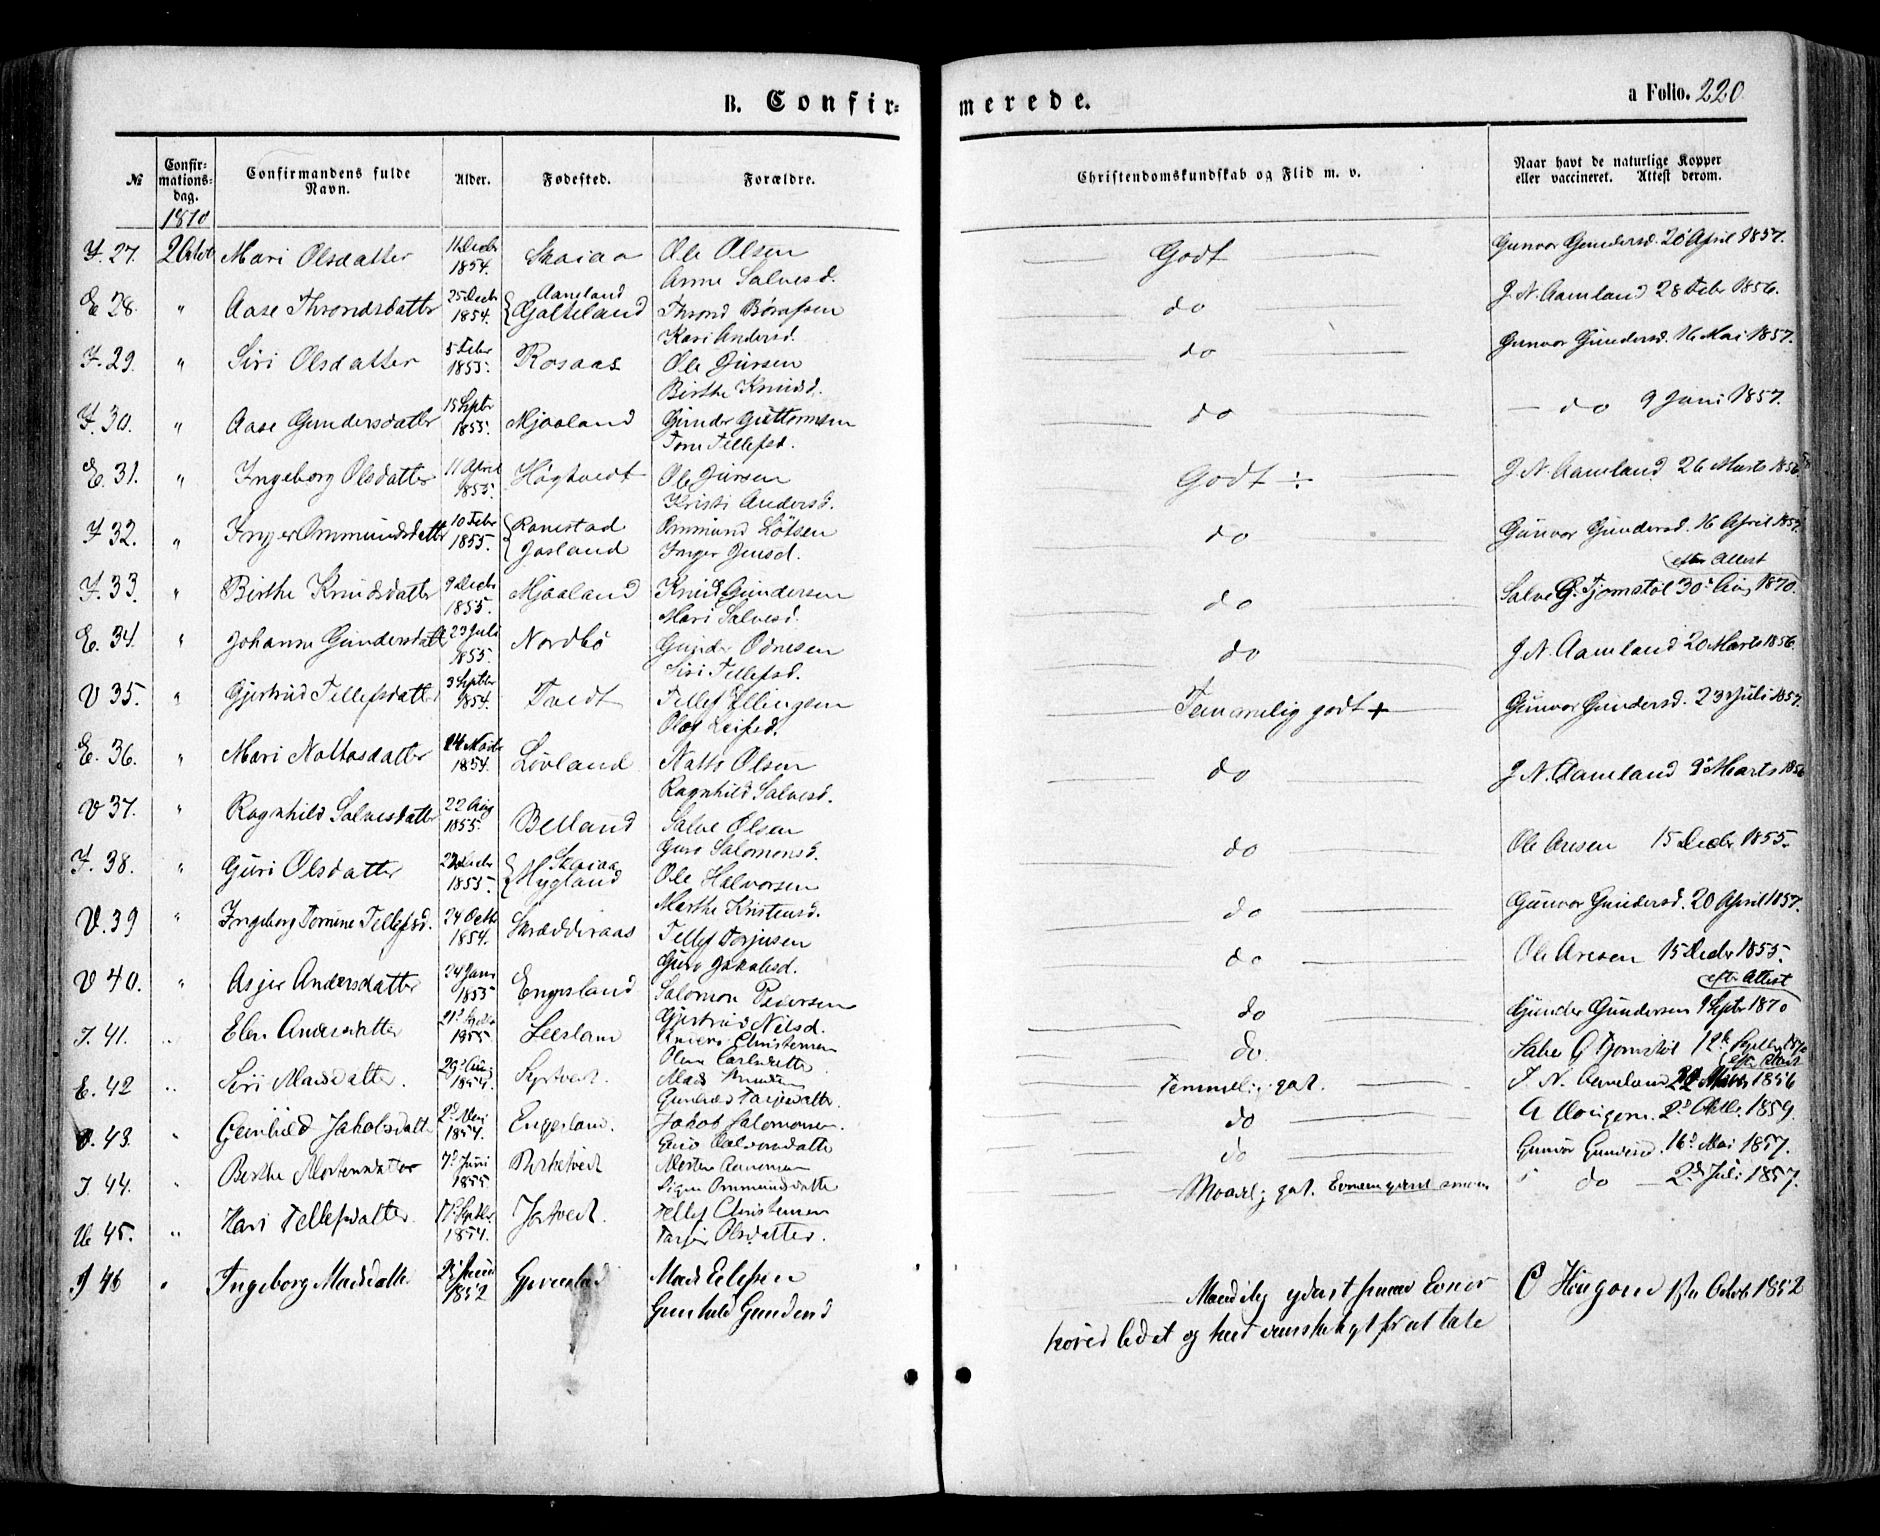 B. Confirmerede. a Folio. 220.
№ Confirmationsdag. Confirmandens fulde Navn. Alder. Fødested. Forældre. Christendomskundskab og Flid m. v. Naar havt de naturlige Kopper eller vaccineret. Attest derom.
1870
F. 27. 2 Octbr Mari Olsdatter 11 Decbr 1854. Skaiaa Ole Olsen Anne Salvesd. Godt Gunvor Gundersd. 20 April 1857.
E 28. " Aase Throndsdatter 25 Decbr 1854. Aaneland Gjalteland Thrond Børufsen Kari Andersd. do J. N. Aamland 28 Febr 1856.
F. 29. " Siri Olsdatter 5 Febr 1855. Rosaas Ole Jursen Birthe Knudsd. do Gunvor Gundersd. 16 Mai 1857.
F. 30. " Aase Gundersdatter 15 Septbr 1855. Mjaaland Gunder Guttormsen Tone Tellefsd. do — do 9 Juni 1857.
E. 31. " Ingeborg Olsdatter 11 April 1855. Høgtvedt Ole Jursen Kristi Andersd. Godt ÷ J. N. Aamland 26 Marts 1856
F 32. " Inger Ommundsdatter 10 Febr 1855. Ranestad Jasland Ommund Lötsen Inger Jensd. do Gunvor Gundersd. 16 April 1857.
F. 33. " Birthe Knudsdatter 9 Decbr 1855. Mjaaland Knud Gundersen Mari Salvesd. do efter Attest Salve G. Tjomstøl 30 Aug 1870.
E. 34. " Johanne Gundersdatter 23 Juli 1855. Nordbø Gunder Odnesen Siri Tellefsd. do J. N. Aamland 20 Marts 1856.
V 35. " Gjertrud Tellefsdatter 3 Septbr 1854. Tvedt Tellef Ellingsen Olag Leifsd. Temmelig godt + Gunvor Gundersd. 23 Juli 1857.
E. 36. " Mari Nattosdatter 1854. Løvland Natto Olsen Ragnhild Salvesd. do J. N. Aamland 9 Marts 1856
V 37. " Ragnhild Salvesdatter 22 Aug 1855. Belland Salve Olsen Guro Salomonsd. do Ole Aresen 15 Decbr 1855.
F. 38. " Guri Olsdatter Decbr 1855. Skaiaa Mygland Ole Halvorsen Marthe Kristensd. do Gunvor Gundersd. 20 April 1857.
V. 39 " Ingeborg Tomine Tellefsd. 24 Octbr 1854. Skrædderaas Tellef Torjusen Guro Jakobsd. do Ole Aresen 15 Decbr 1855.
V 40. " Asjer Andersdatter 24 Janr 1855 Engesland Salomon Pedersen Gjertrud Nilsd. do efter Attest Gunder Gundersen 9 Septr 1870
I. 41. " Elen Andersdatter 1855 Leesland Anders Christensen Olene Carlsdatter do Salve G Tjomstøl 12te Septbr 1870 efter Attest
E. 42 " Siri Madsdatter. 29 Aug 1854. Syrtvedt. Mads Knudsen Gunhild Tarjesdatter. Temmelig got. J. N. Aamland Marts 1856
V. 43. " Gunhild Jakobsdatter 2d Mai 1854. Engesland. Jakob Salomonsen. Guro Halvorsdatter do A Hougom. 2d Octbr 1859.
I. 44. " Berthe Mortensdatter 7d Juni 1855 Birketvedt Morten Aanensen Signe Ommundsdatter do Gunvor Gundersd. 16d Mai 1857.
V. 45. " Kari Tellefsdatter. 17 Septbr 1854. Jortvedt. Tellef Christensen Tarjer Olsdatter. Maadelig got. Evnerne yderst smaa " do — 2d Juli 1857.
I 46 " Ingeborg Madsdatter 1852 Gjevestad Mads Eilefsen Gunhild Gundersd Maadelig yderst smaa Evner
O Hougom 1ste Octob 1852